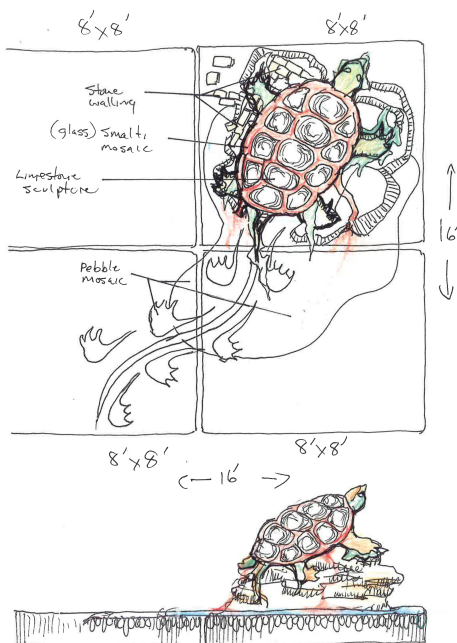 8'x8'
8'x8'
Stone
walling
(glass) Smalti
mosaic
Limestone
sculpture
16'
Pebble
mosaic
8'x8'
8'x8'
16'